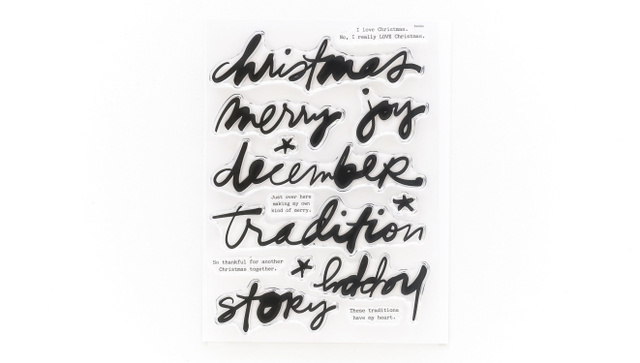 I love Christmas.
No, I really LOVE Christmas.
christmas
merry joy
december
Just over here
making my own
kind of merry.
tradition
So thankful for another
Christmas together.
holiday
story
These traditions
have my heart.